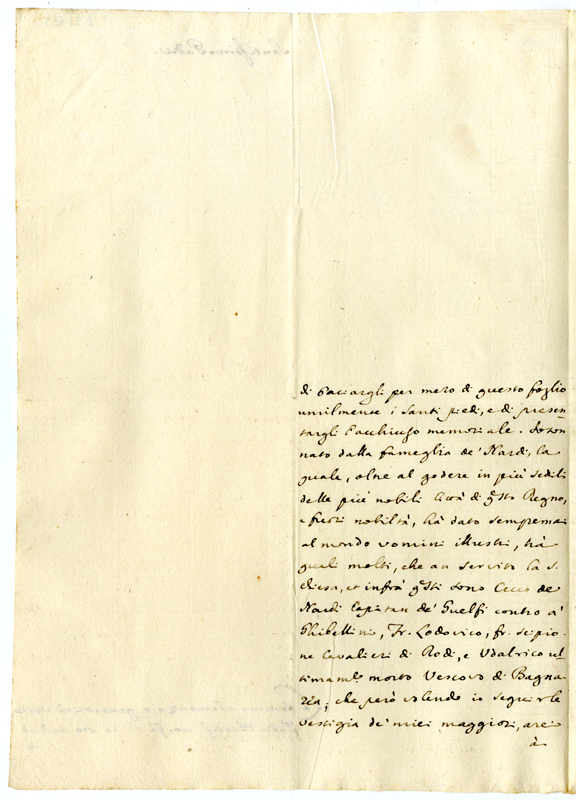 di baciargli per mezo di questo foglio
umilmente i santi piedi, e di presen
targli l'acchiuso memoriale. Io son
nato dalla fameglia de' Nardi, la
quale, oltre al godere in più sedili
delle più nobili Città di qsto Regno,
e fuori nobiltà, hà dato sempremai
al mondo uomini illustri, trà
quali molti, che an servito la S.
Chiesa, et infrà qsti sono Cecco de
Nardi Capitan de' Guelfi contro a'
Ghibellini, Fr. Lodovico, fr. Scipio
ne Cavalieri di Rodi, e Udalrico ul
timamte morto Vescovo di Bagna
rea; che però volendo io seguir le
vestigia de' miei maggiori,
à